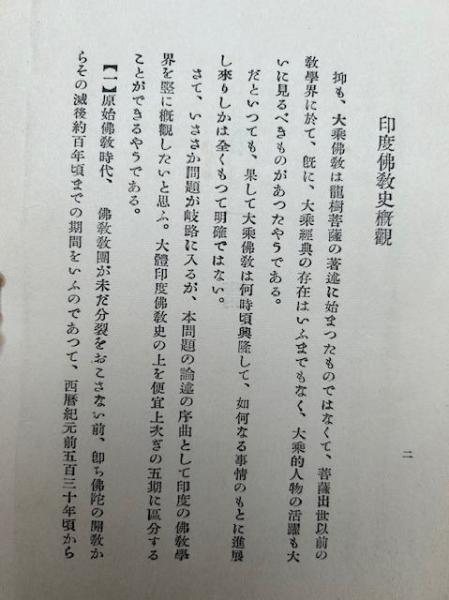 印度佛敎史槪觀
抑も、大乘佛敎は龍樹菩薩の著述に始まつたものではなくて、菩薩出世以前の
敎學界に於て、旣に、大乘經典の存在はいふまでもなく、大乘的人物の活躍も大
いに見るべきものがあつたやうである。
だといつても、果して大乘佛敎は何時頃興隆して、如何なる事情のもとに進展
し來りしかは全くもつて明確ではない。
さて、いささか問題が岐路に入るが、本問題の論述の序曲として印度の佛敎學
界を竪に槪觀したいと思ふ。大體印度佛敎史の上を便宜上次ぎの五期に區分する
ことができるやうである。
【一】原始佛敎時代、佛敎敎團が未だ分裂をおこさない前、卽ち佛陀の開敎か
らその滅後約百年頃までの期間をいふのであつて、西曆紀元前五百三十年頃から
二